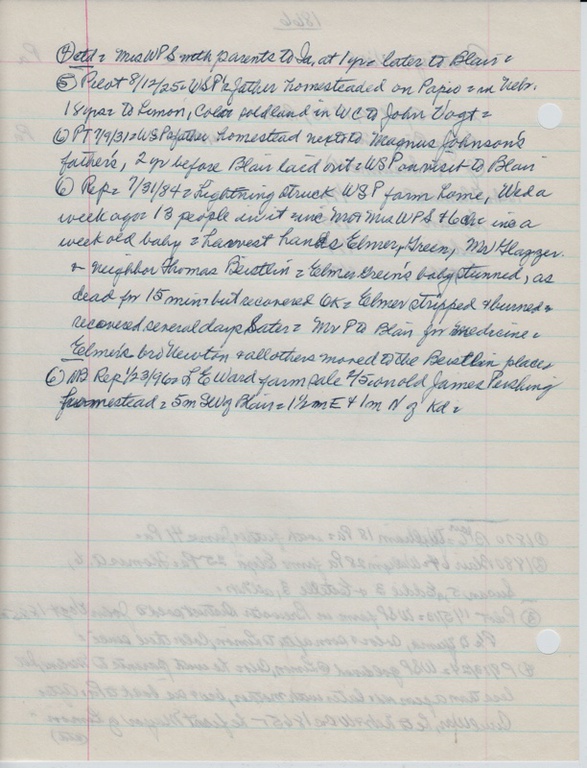 1866
④ ctd = Mrs WP Smith parents to Ia, at 1 yr = later to Blair =
⑤ Pilot 8/12/25 = WSP's father homesteaded on Papio = in Nebr.
18 yrs = to Limon, Colo = sold land in WC to John Vogt =
⑥ PT 7/9/31 = WSP father homestead next to Magnus Johnson's
father's, 2 yr before Blair laid out = WSP on visit to Blair
⑥ Rep = 7/31/84 = Lightning struck WSP farm home, Wed a
week ago = 13 people in it inc Mr & Mrs WPS & 6 chr inc a
week old baby = harvest hands Elmer Green, Mr Glazzer
& neighbor Thomas Beistlin = Elmer Green's baby stunned, as
dead for 15 min = but recovered OK = Elmer stripped & burned &
recovered several days later = Mr P to Blair for medicine =
Elmer's bro Newton & all others moved to the Beistlin place =
⑥ Rep 1/23/96 = L E Ward farm sale 2/5 on old James Pershing
homestead = 5m SW of Blair = 1½ m E & 1m N of Kd =